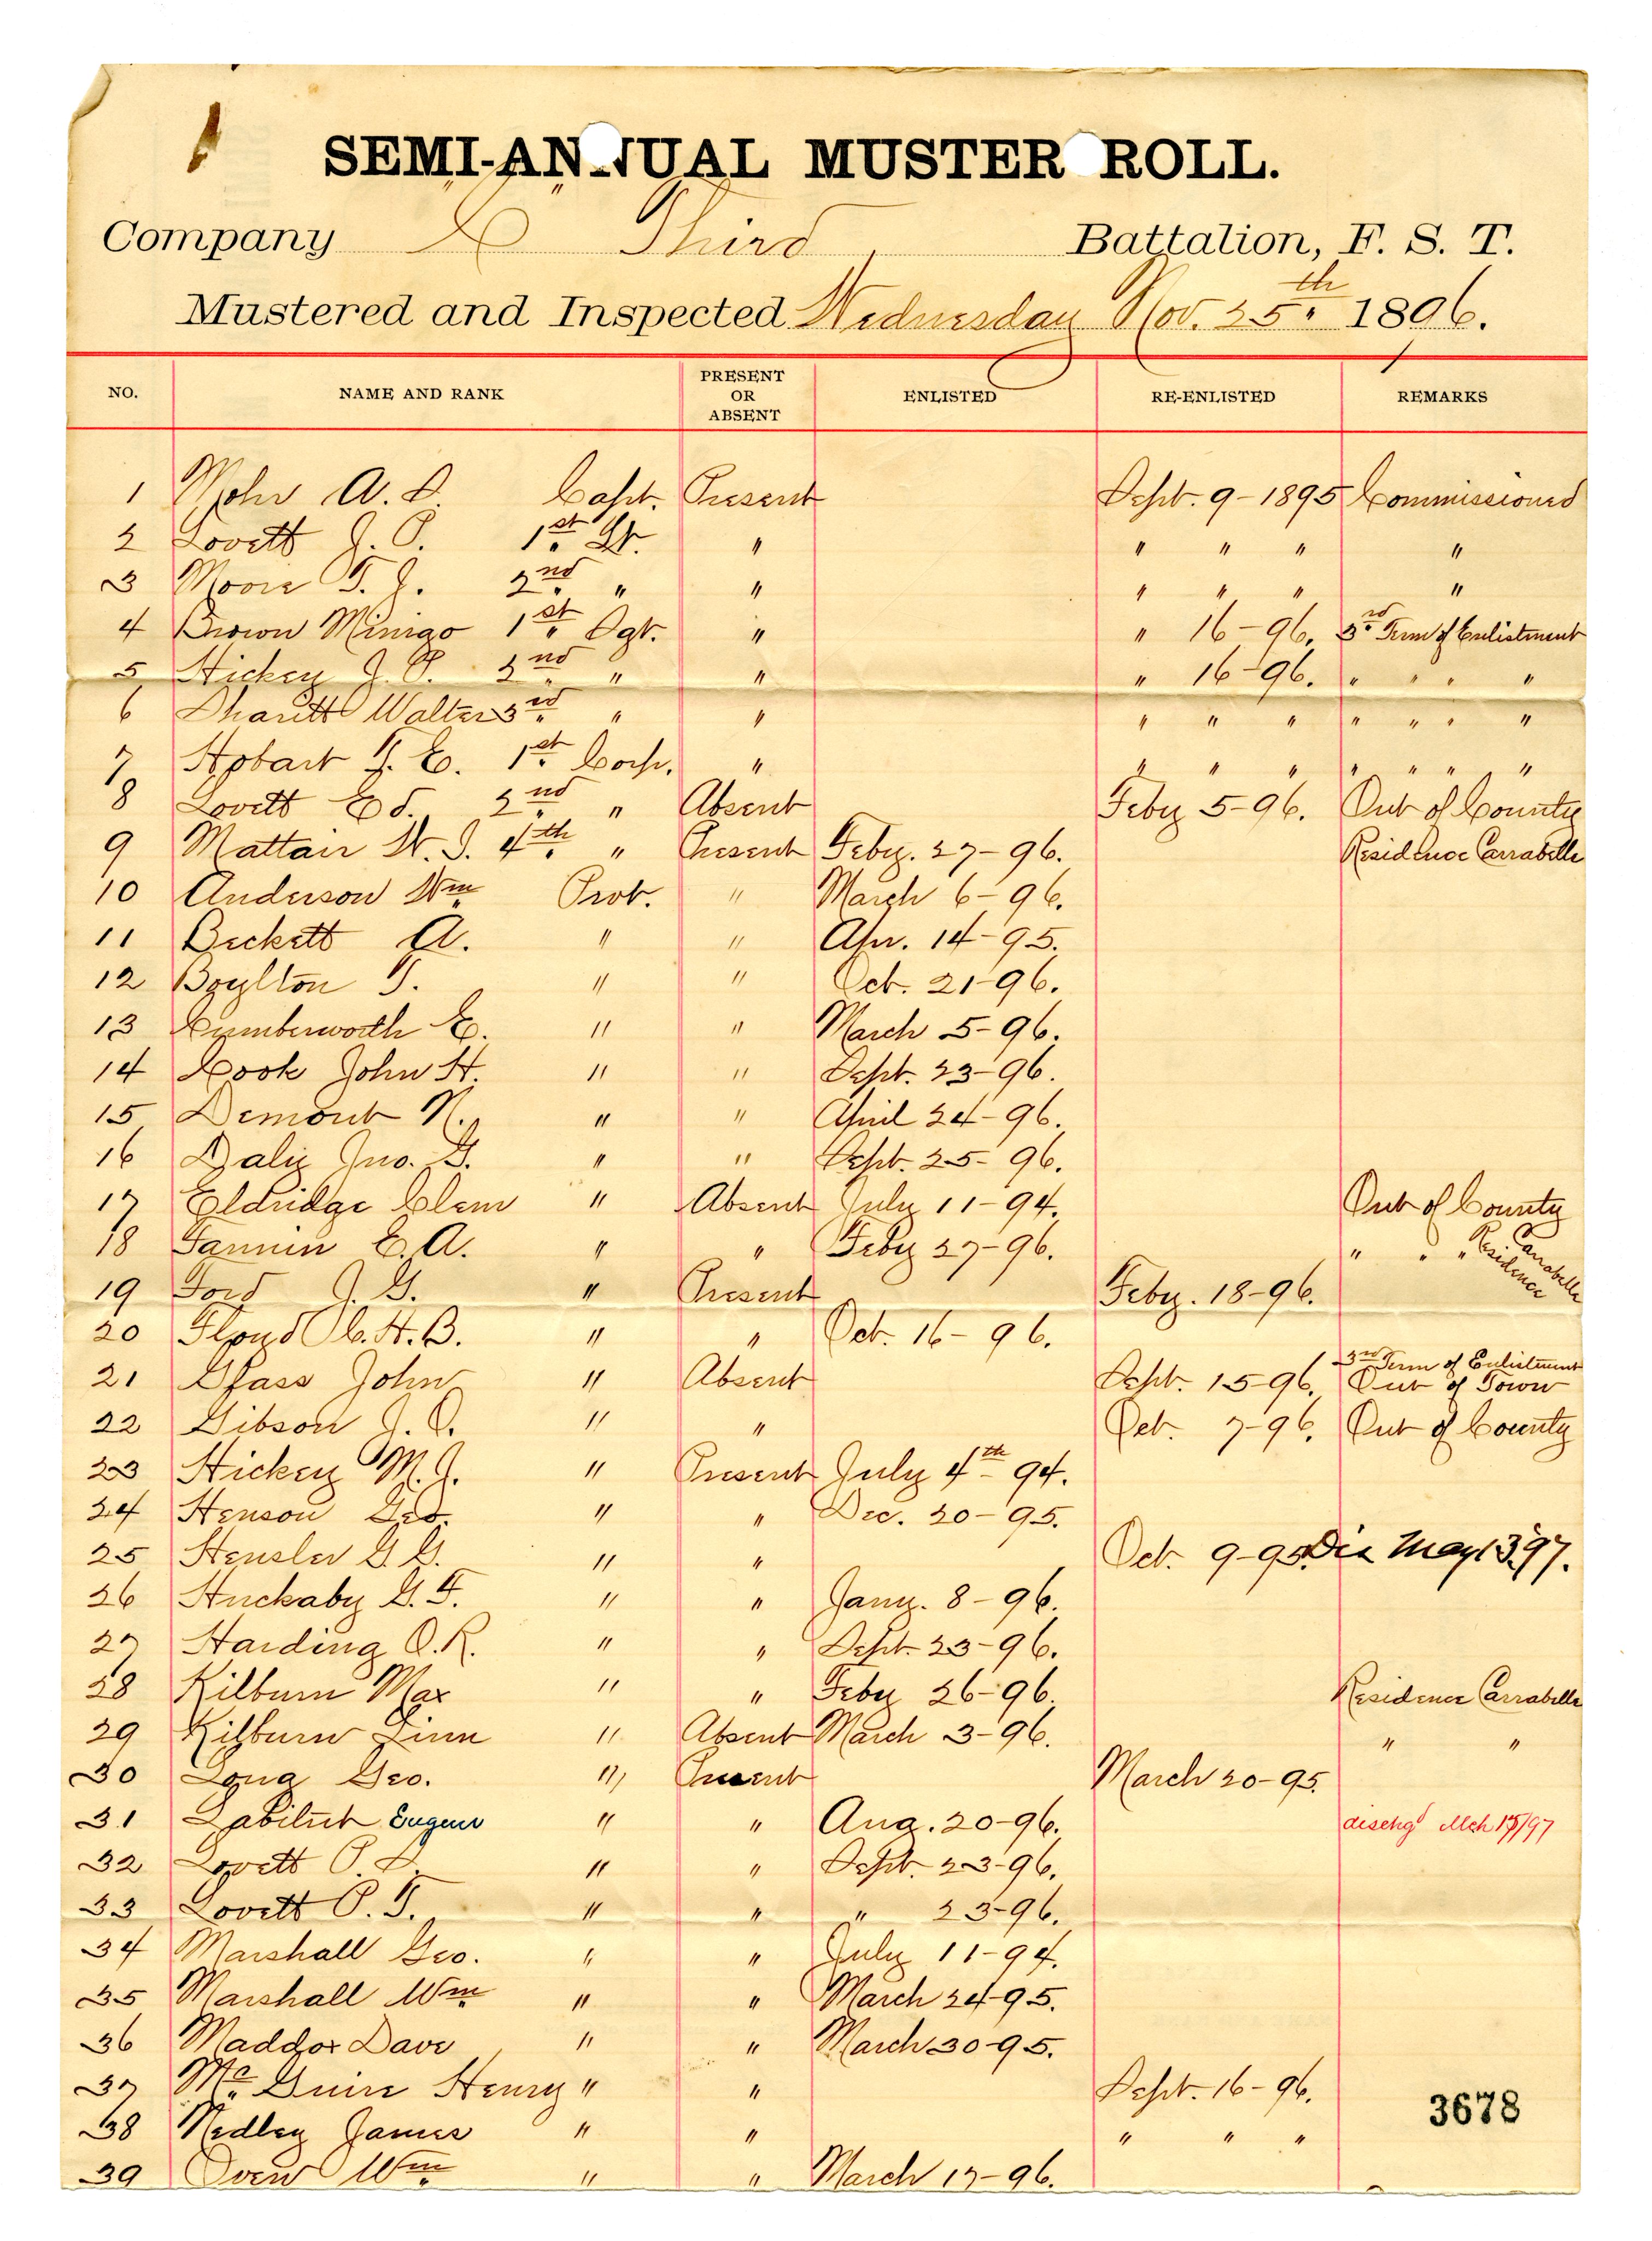 SEMI-ANNUAL MUSTER ROLL.
Company C Third Battalion, F. S. T.
Mustered and Inspected Wednesday Nov. 25th 1896.
NO. NAME AND RANK PRESENT OR ABSENT ENLISTED RE-ENLISTED REMARKS
1 Mohr A. D. Capt. Present Sept. 9-1895 Commissioned
2 Lovett J. P. 1st Lt. " " " " "
3 Moore T. J. 2nd " " " " " "
4 Brown Mingo 1st Sgt. " " 16-96. 3rd Term of Enlistment
5 Hickey J. P. 2nd " " " 16-96. " " " "
6 Sharitt Walter 3rd " " " " " " " " "
7 Hobart J. E. 1st Corp. " " " " " " " "
8 Lovett Ed. 2nd " Absent Feby 5-96. Out of County
9 Mattair W. J. 4th " Present Feby. 27-96. Residence Carrabelle
10 Anderson Wm Prov. " March 6-96.
11 Beckett A. " " Apr. 14-95.
12 Boylton T. " " Oct. 21-96.
13 Cumberworth E. " " March 5-96.
14 Cook John H. " " Sept. 23-96.
15 Demont N. " " April 24-96.
16 Daliz Jno. G. " " Sept. 25-96.
17 Eldridge Clem " Absent July 11-94. Out of County
18 Fannin E. A. " " Feby 27-96. " " " Residence Carrabelle
19 Ford J. G. " Present Feby. 18-96.
20 Floyd C. H. B. " " Oct. 16-96.
21 Glass John " Absent Sept. 15-96. 3rd Term of Enlistment Out of Town
22 Gibson J. C. " " Oct. 7-96. Out of County
23 Hickey M. J. " Present July 4th 94.
24 Henson Geo. " " Dec. 20-95.
25 Hensler G. G. " " Oct. 9-95. Dis May 13, 97.
26 Huckaby G. F. " " Jany. 8-96.
27 Harding O. R. " " Sept. 23-96.
28 Kilburn Max " " Feby 26-96. Residence Carrabelle
29 Kilburn Linn " Absent March 3-96. " "
30 Long Geo. " Present March 20-95.
31 Labilut Eugene " " Aug. 20-96. dischgd Mch 15/97
32 Lovett P. L. " " Sept. 23-96.
33 Lovett P. T. " " " 23-96.
34 Marshall Geo. " " July 11-94.
35 Marshall Wm " " March 24-95.
36 Maddox Dave " " March 30-95.
37 Mc. Guire Henry " " Sept. 16-96.
38 Nedley James " " " " "
39 Oven Wm " " March 17-96.
3678